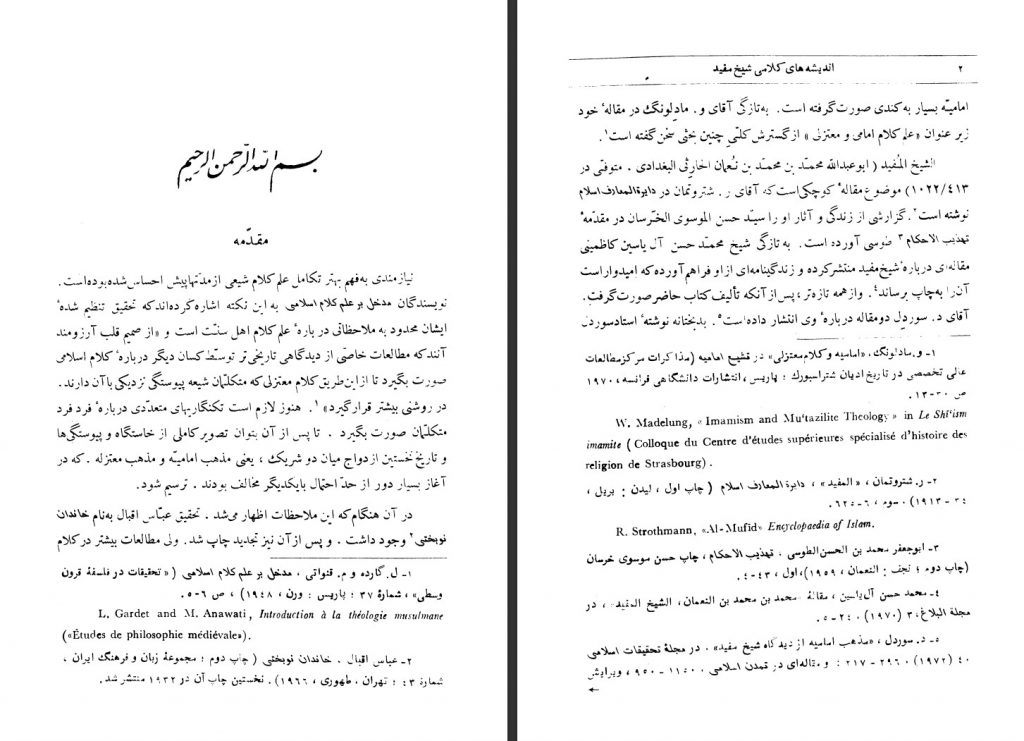 بسم الله الرحمن الرحیم
مقدّمه
نیازمندی به‌فهم بهتر تکامل علم کلام شیعی از مدتها پیش احساس شده بوده‌است.
نویسندگان مدخل بر علم کلام اسلامی به این نکته اشاره کرده‌اند که تحقیق تنظیم شدهٔ
ایشان محدود به ملاحظاتی دربارهٔ علم کلام اهل سنّت است و «از صمیم قلب آرزومند
آنند که مطالعات خاصّی از دیدگاهی تاریخی‌تر توسّط کسان دیگر دربارهٔ کلام اسلامی
صورت بگیرد تا از این طریق کلام معتزلی که متکلّمان شیعه پیوستگی نزدیکی با آن دارند.
در روشنی بیشتر قرار گیرد»۱. هنوز لازم است تکنگاریهای متعدّدی دربارهٔ فرد فرد
متکلّمان صورت بگیرد. تا پس از آن بتوان تصویر کاملی از خاستگاه و پیوستگی‌ها
و تاریخ نخستین ازدواج میان دو شریک، یعنی مذهب امامیّه و مذهب معتزله. که در
آغاز بسیار دور از حدّ احتمال با یکدیگر مخالف بودند. ترسیم شود.
در آن هنگام که این ملاحظات اظهار می‌شد. تحقیق عبّاس اقبال به‌نام خاندان
نوبختی۲ وجود داشت. و پس از آن نیز تجدید چاپ شد. ولی مطالعات بیشتر در کلام
۱- ل. گارده و م. قنواتی. مدخل بر علم کلام اسلامی («تحقیقات در فلسفهٔ قرون
وسطی»، شمارهٔ ۳۷؛ پاریس: ورن، ۱۹۴۸)، ص ۶-۵.
L. Gardet and M. Anawati, Introduction à la théologie musulmane
(«Études de philosophie médiévale»).
۲- عباس اقبال. خاندان نوبختی (چاپ دوم؛ مجموعهٔ زبان و فرهنگ ایران،
شمارهٔ ۴۳؛ تهران، طهوری، ۱۹۶۶). نخستین چاپ آن در ۱۹۳۲ منتشر شد.
۲ اندیشه‌های کلامی شیخ مفید
امامیّه بسیار به‌کندی صورت گرفته است. به‌تازگی آقای و. مادلونگ در مقالهٔ خود
زیر عنوان «علم کلام امامی و معتزلی» از گسترش کلّی چنین بحثی سخن گفته است۱.
الشیخ المُفید (ابوعبدالله محمّد بن محمّد بن نُعمان الحارثی البغدادی. متوفّی در
۱۰۲۲/۴۱۳) موضوع مقالهٔ کوچکی است که آقای ر. شتروتمان در دایرة المعارف اسلام
نوشته است۲. گزارشی از زندگی و آثار او را سیّد حسن الموسوی الخرسان در مقدمهٔ
تهذیب الاحکام۳ طوسی آورده است. به تازگی شیخ محمّد حسن آل یاسین کاظمینی
مقاله‌ای دربارهٔ شیخ مفید منتشر کرده و زندگینامه‌ای از او فراهم آورده که امیدوار است
آن را به‌چاپ برساند۴. و از همه تازه‌تر، پس از آنکه تألیف کتاب حاضر صورت گرفت.
آقای د. سوردل دو مقاله دربارهٔ وی انتشار داده است۵. بدبختانه نوشتهٔ استاد سوردل
۱- و. مادلونگ. «امامیه و کلام معتزلی» در تشیع امامیه (مذاکرات مرکز مطالعات
عالی تخصصی در تاریخ ادیان شتراسبورگ؛ پاریس، انتشارات دانشگاهی فرانسه، ۱۹۷۰،
ص ۳۰-۱۳.
W. Madelung, «Imamism and Mu‘tazilite Theology» in Le Shî‘ism
imamite (Colloque du Centre d’études supérieures spécialisé d’histoire des
religion de Strasbourg).
۲- ر. شتروتمان، «المفید»، دایرة المعارف اسلام (چاپ اول، لیدن: بریل،
۳۴-۱۹۱۳). سوم، ۶-۶۲۵.
R. Strothmann, «Al-Mufid» Encyclopaedia of Islam.
۳- ابوجعفر محمد بن الحسن الطوسی. تهذیب الاحکام، چاپ حسن موسوی خرسان
(چاپ دوم؛ نجف: النعمان، ۱۹۵۹)، اول، ۴۳-۴.
۴- محمد حسن آل یاسین، مقالهٔ «محمد بن محمد بن النعمان، الشیخ المفید»، در
مجلة البلاغ، ۳ (۱۹۷۰). ۲۴-۵.
۵- د. سوردل، «مذهب امامیه از دیدگاه شیخ مفید». در مجلهٔ تحقیقات اسلامی
۴۰ (۱۹۷۲) ۲۹۶-۲۱۷؛ و مقاله‌ای در تمدن اسلامی. ۱۱۵۰-۹۵۰، ویرایش
←